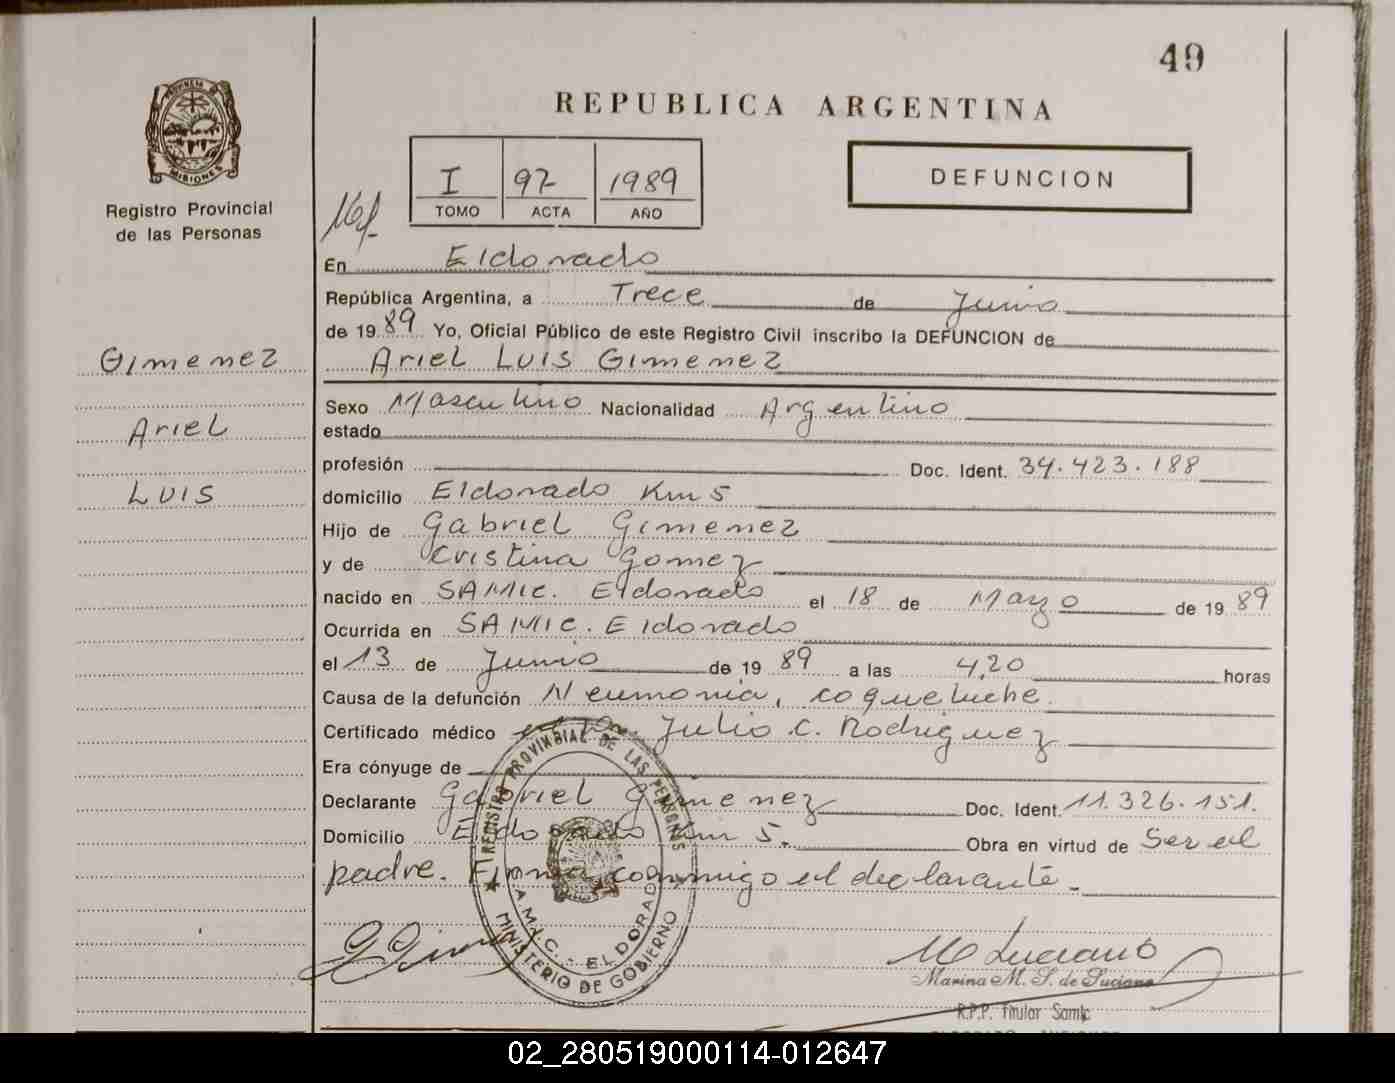 49
REPUBLICA ARGENTINA
PROVINCIA DE
MISIONES
Registro Provincial
de las Personas
I 97 1989
TOMO ACTA AÑO
DEFUNCION
En Eldorado
República Argentina, a Trece de Junio
de 1989 Yo, Oficial Público de este Registro Civil inscribo la DEFUNCION de
Ariel Luis Gimenez
Gimenez
Ariel
Luis
Sexo Masculino Nacionalidad Argentino
estado
profesión Doc. Ident. 34.423.188
domicilio Eldorado Km 5
Hijo de Gabriel Gimenez
y de Cristina Gomez
nacido en SAMIC. Eldorado el 18 de Mayo de 1989
Ocurrida en SAMIC. Eldorado
el 13 de Junio de 1989 a las 4,20 horas
Causa de la defunción Neumonia, coqueluche.
Certificado médico el Dr. Julio C. Rodriguez
Era cónyuge de
Declarante Gabriel Gimenez Doc. Ident. 11.326.151.
Domicilio Eldorado Km 5. Obra en virtud de Ser el
padre. Firma conmigo el declarante.
REGISTRO PROVINCIAL DE LAS PERSONAS
S.A.M.I.C. - ELDORADO
MINISTERIO DE GOBIERNO
M Luciano
Marina M. S. de Luciano
R.P.P. Titular Samic
02_280519000114-012647